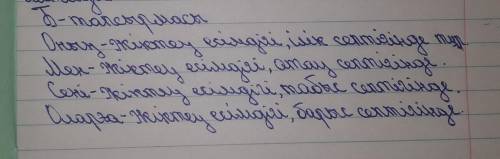 Б-тапсырмасы
Оның-жіктеу есімдігі, ілік септігінде тұр
Мен-жіктеу есімдігі, атау септігінде.
Сені-жіктеу есімдігі, табыс септігінде.
Оларға-жіктеу есімдігі, барыс септігінде.